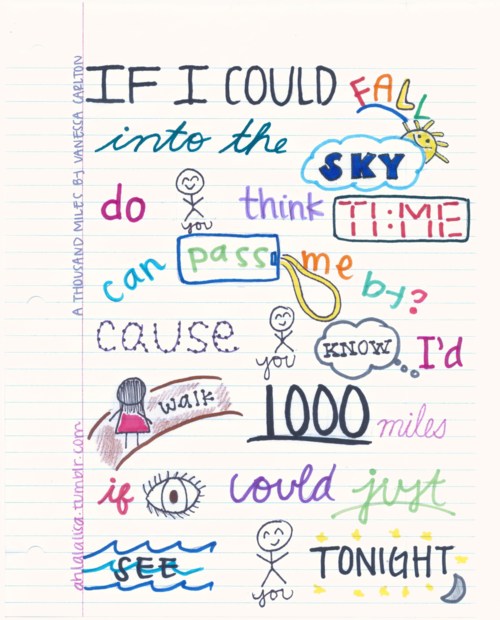 IF I COULD FALL
into the SKY
do you think TI:ME
can pass me by?
cause you KNOW I'd
walk 1000 miles
if could just
SEE you TONIGHT
A THOUSAND MILES BY VANESSA CARLTON
ahlalalisa.tumblr.com